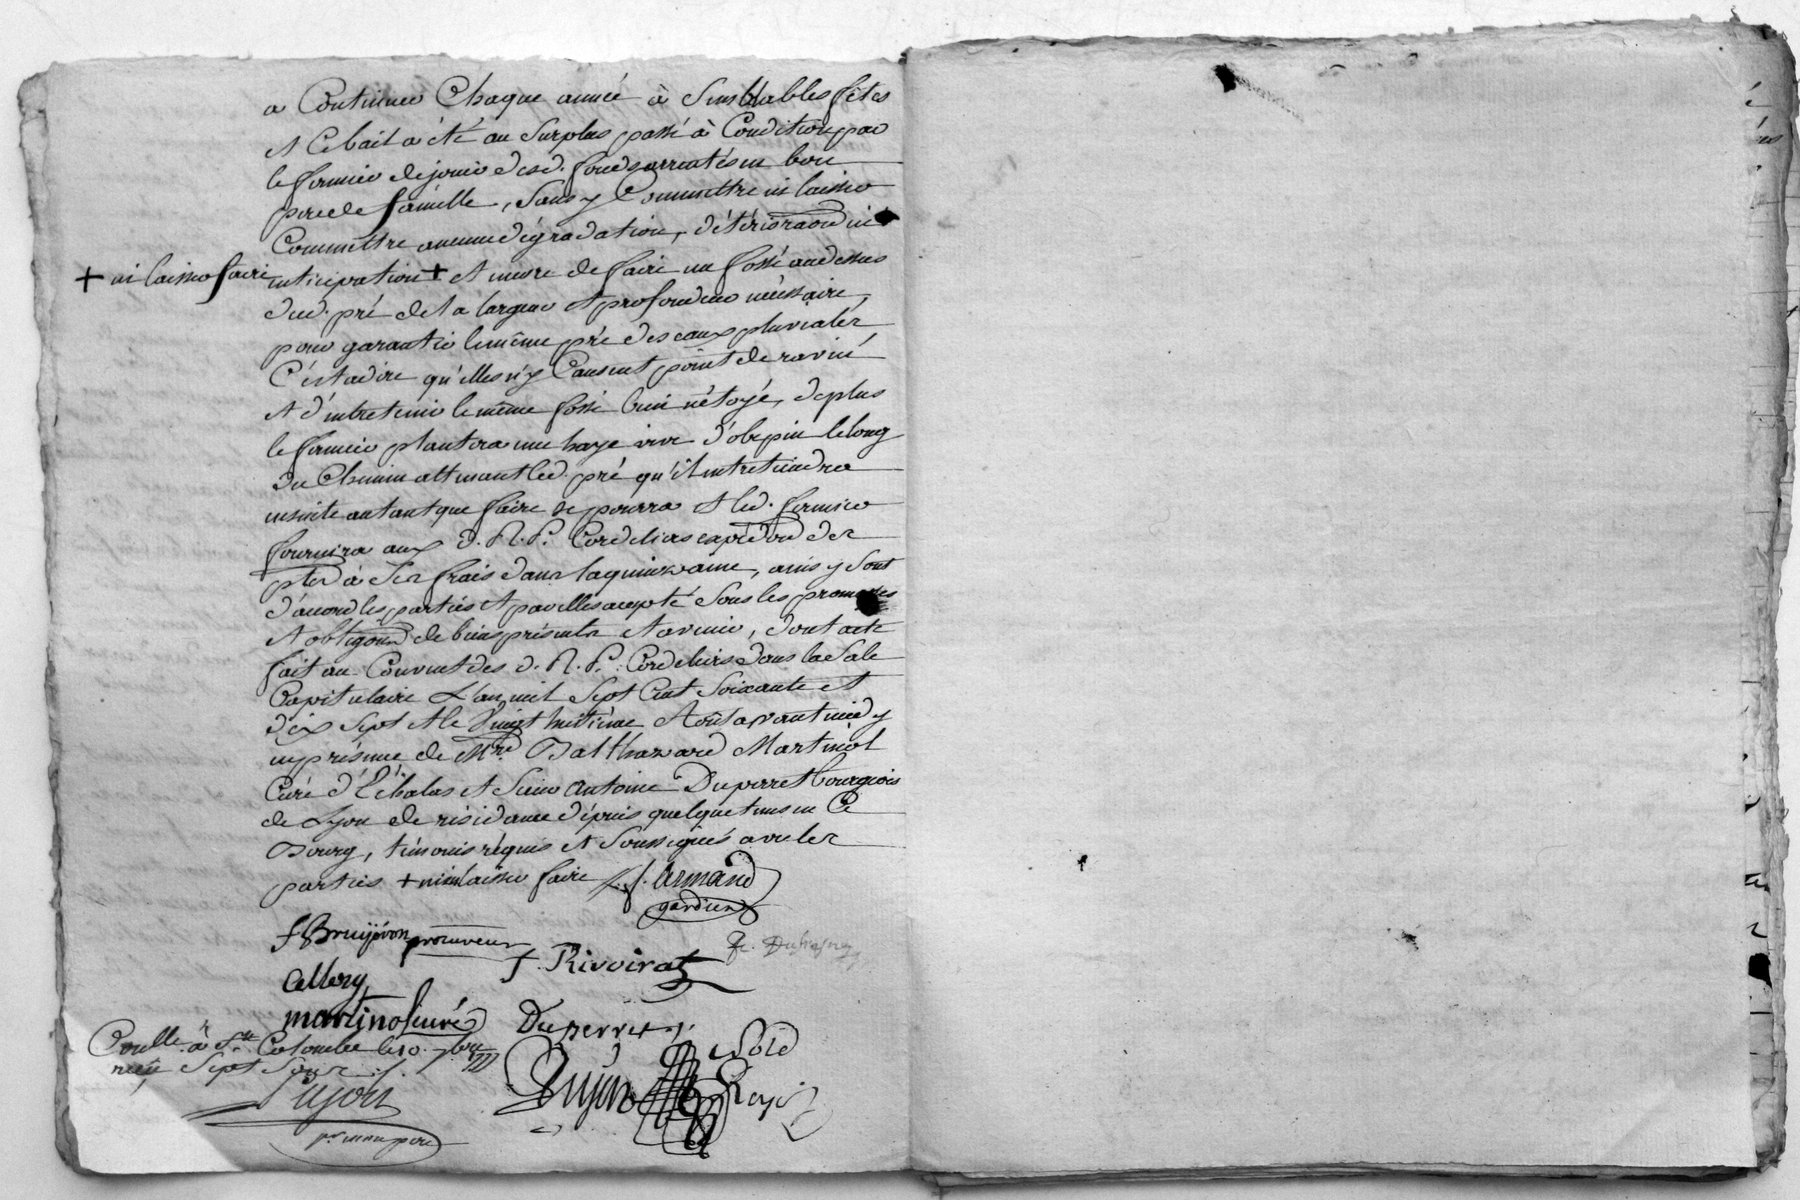 a Continuer Chaque année à Semblables fêtes
et Ce bail a été au Surplus passé à Condition par
le fermier de jouir desd. fonds arrentés en bon
pere de famille, Sans y Commettre ni laisser
Commettre aucune dégradation, détérioraôn ni
+ ni laisser faire
anticipation + et encore de faire un fossé au dessus
dud. pré de la largeur et profondeur nécéssaire,
pour garantir le même pré des eaux pluviales,
C'est adire qu'elles n'y Causent point de ravine
et d'entretenir le même fossé bien nétoyé, de plus
le fermier plantera une haye vive d'obepin le long
du Chemin attenant led. pré qu'il entretiendra
ensuite autant que faire se pourra et led. fermier
fournira aux d. R. P. Cordeliers expédôn des
ptes à Ses frais dans la quinzaine, ainsi y Sont
d'accord les parties et par elles accepté Sous les promesses
et obligôns de biens présents et avenir, dont acte
fait au Couvent des d. R. P. Cordeliers dans la Sale
Capitulaire L'an mil Sept Cent Soixante et
dix Sept et le Vingt huitième Août avant midy
en présence de Mre. Balthazard Martinol
Curé d'Echalas et Sieur Antoine Duperret bourgeois
de Lyon de résidence dépuis quelque tems en Ce
Bourg, témoins réquis et Soussignés avec les
parties + ni laisser faire f. f. Armand
gardien
f Bruyéron procureur
f. Rivoirat
fr. Dufresny
Cellery
martinol curé
Duperret
Conllé à Ste Colombe le 10. 7bre
1777
reçu Sept Sous
Dujon
Noté
Royé
Pujon
pr. mon pere